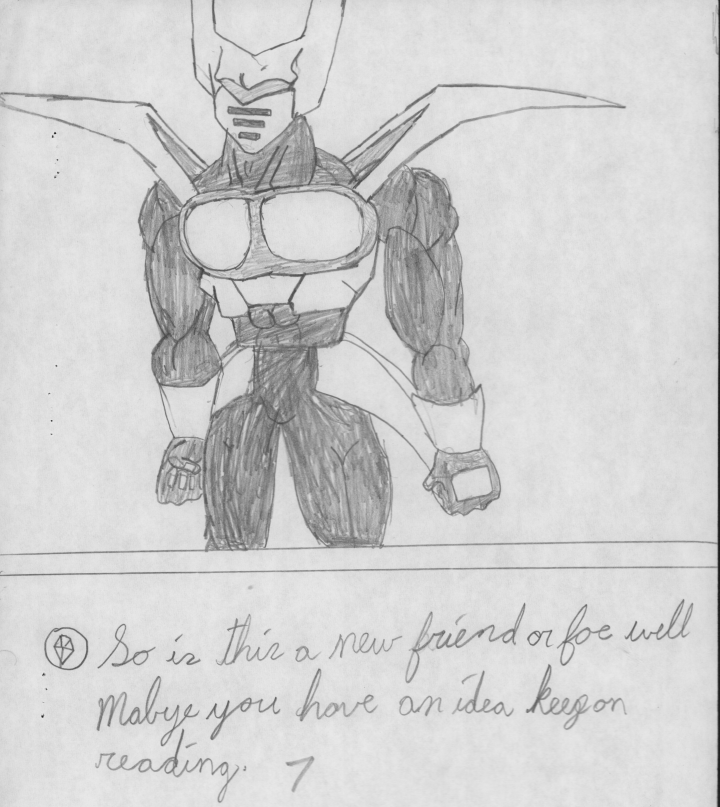 So is this a new friend or foe well
Mabye you have an idea keep on
reading. 7